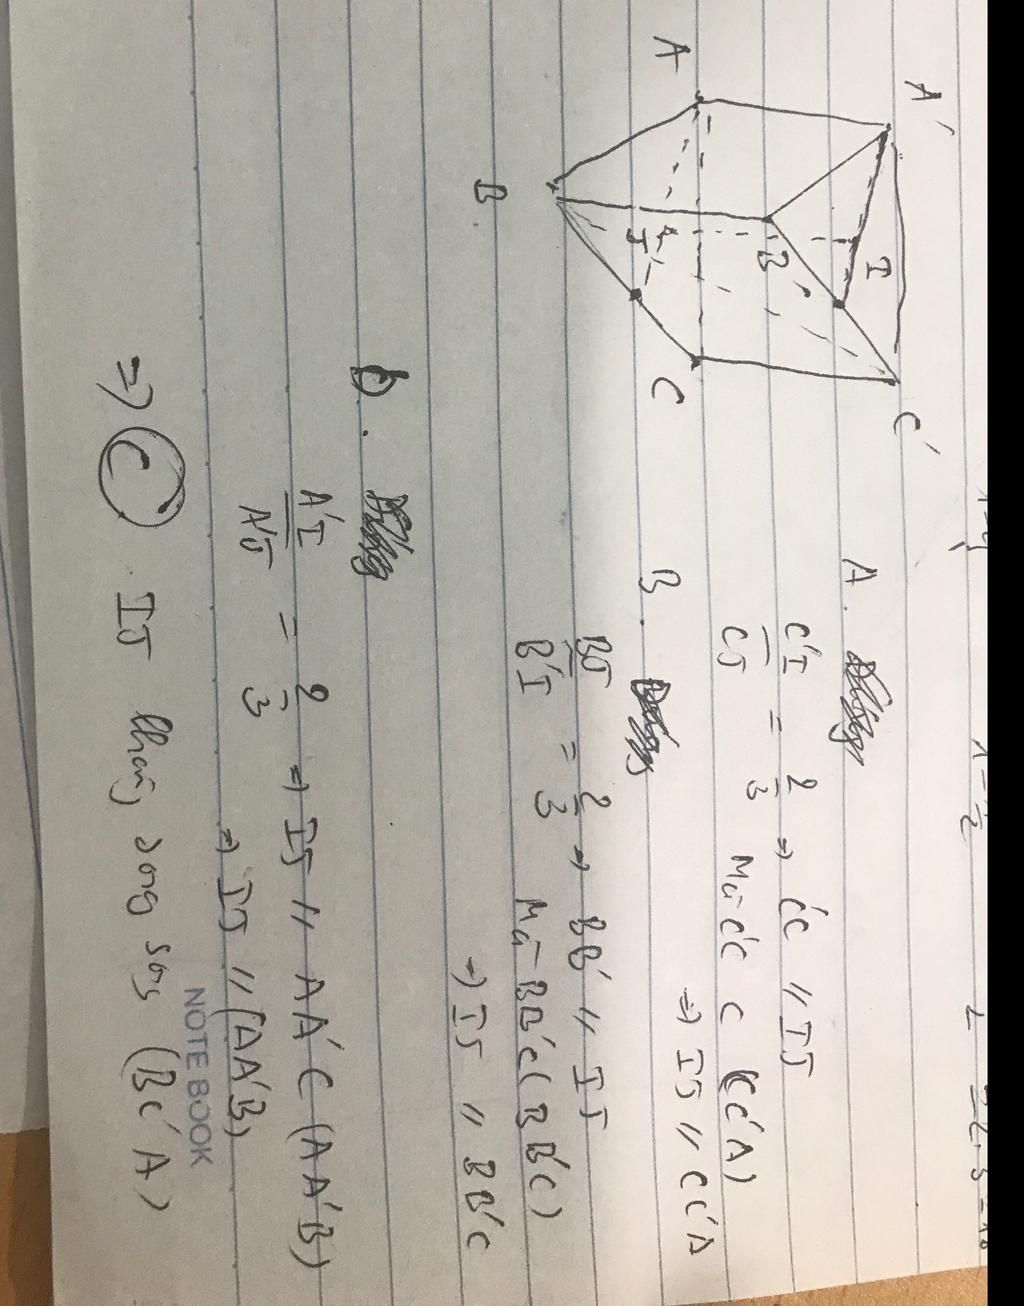 A'
C'
I
B
A
J
C
B
A.
C'I / CJ = 2/3 => C'C // IJ
Mà C'C ⊂ (CC'A)
=> IJ // CC'A
B.
BJ / B'I = 2/3 => BB' // IJ
Mà BB'C (BB'C)
=> IJ // BB'C
D.
A'I / A'J = 2/3 => IJ // AA' ⊂ (AA'B)
=> IJ // (AA'B)
=> C IJ không song song (BC'A)
NOTE BOOK